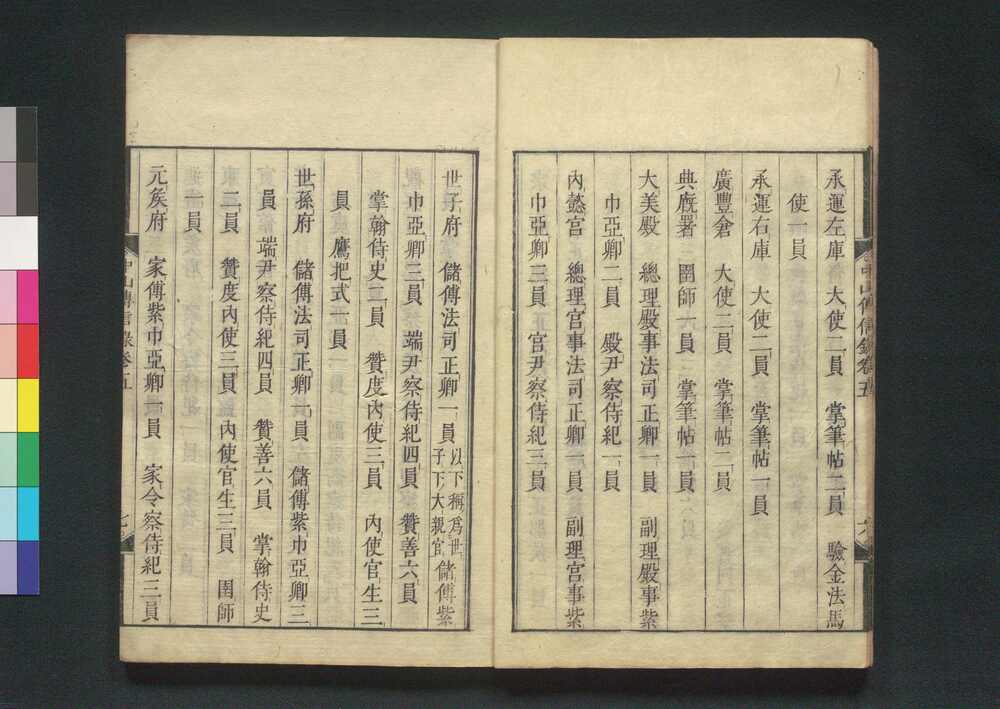 承運左庫　大使二員　掌筆帖二員　驗金法馬
使一員
承運右庫　大使二員　掌筆帖一員
廣豐倉　大使二員　掌筆帖二員
典廐署　圉師一員　掌筆帖一員
大美殿　總理殿事法司正卿一員　副理殿事紫
巾亞卿二員　殿尹察侍紀一員
內懿宮　總理宮事法司正卿一員　副理宮事紫
巾亞卿三員　宮尹察侍紀三員
中山傳信錄卷五
世子府　儲傅法司正卿一員以下稱爲世
子下大親官儲傅紫
巾亞卿三員　端尹察侍紀四員　贊善六員
掌翰侍史二員　贊度內使三員　內使官生三
員　鷹把式一員
世孫府　儲傅法司正卿一員　儲傅紫巾亞卿三
員　端尹察侍紀四員　贊善六員　掌翰侍史
二員　贊度內使三員　內使官生三員　圉師
一員
元矦府　家傅紫巾亞卿一員　家令察侍紀三員
中山傳信錄卷五
七